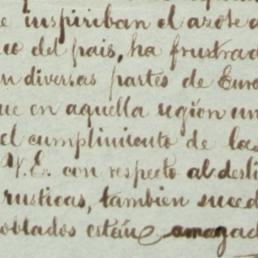 inspiriban el azote d
co del pais, ha frustrad
n diversas partes de Euro
ue en aquella region un
el cumplimiento de las
V. E. con respecto al desli
rusticas, tambien suced
oblados estan amagad